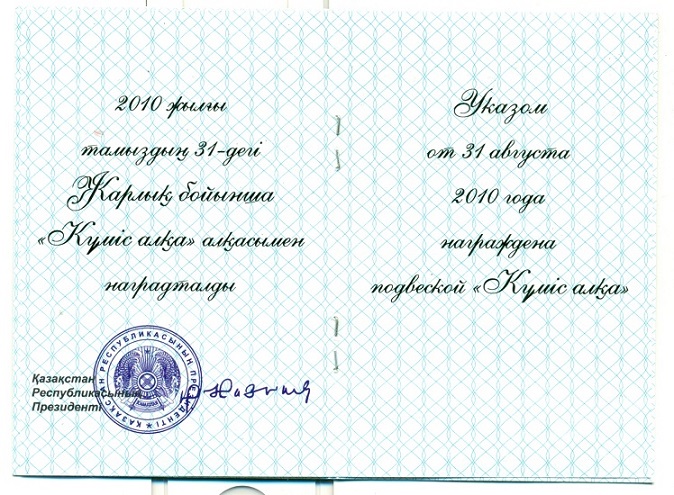 2010 жылғы
тамыздың 31-дегі
Жарлық бойынша
«Күміс алқа» алқасымен
наградталды
Қазақстан
Республикасының
Президенті
ҚАЗАҚСТАН РЕСПУБЛИКАСЫНЫҢ ПРЕЗИДЕНТІ
Указом
от 31 августа
2010 года
награждена
подвеской «Күміс алқа»